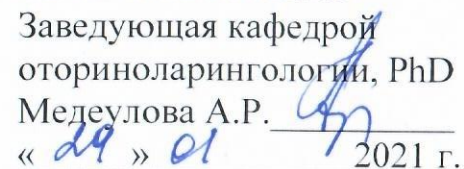 Заведующая кафедрой
оториноларингологии, PhD
Медеулова А.Р.
« 29 » 01 2021 г.